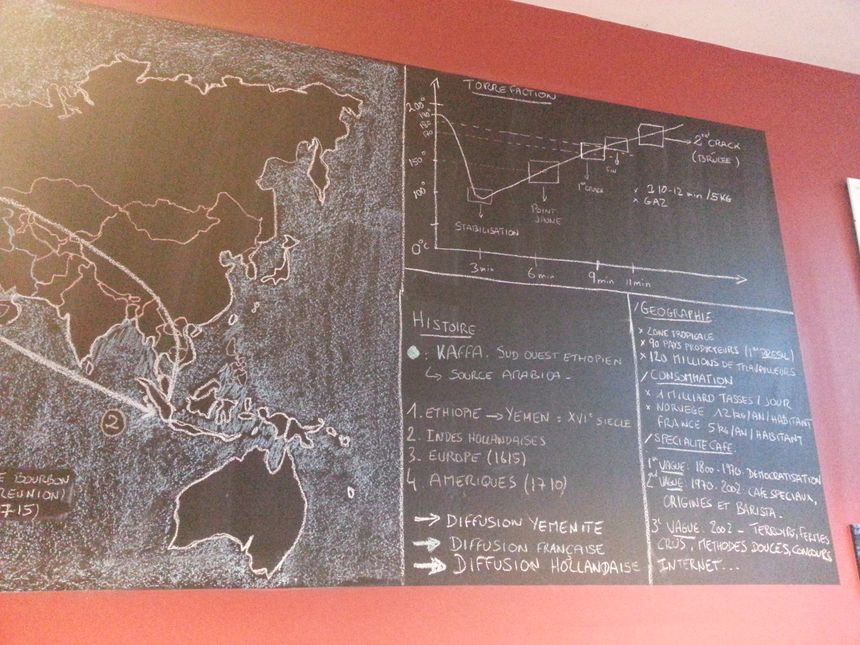 TORREFACTION
200°
150°
100°
0°C
STABILISATION
POINT
JAUNE
1er CRACK
FIN
2nd CRACK
(BRÛLÉE)
x ± 10-12 min /5KG
x GAZ
3min
6min
9min
11min
2
E BOURBON
REUNION)
715)
HISTOIRE
: KAFFA. SUD OUEST ETHOPIEN
↳ SOURCE ARABICA -
1. ETHIOPIE → YEMEN : XVIe SIECLE
2. INDES HOLLANDAISES
3. EUROPE (1615)
4. AMERIQUES (1710)
→ DIFFUSION YEMENITE
→ DIFFUSION FRANÇAISE
→ DIFFUSION HOLLANDAISE
/GEOGRAPHIE
x ZONE TROPICALE
x 90 PAYS PRODUCTEURS (1er BRESIL)
x 120 MILLIONS DE TRAVAILLEURS
/CONSOMMATION
x 1 MILLIARD TASSES / JOUR
x NORVEGE 12 kg/AN/HABITANT
FRANCE 5 kg/AN/HABITANT
/SPECIALITE CAFE:
1er VAGUE: 1800-1970. DEMOCRATISATION
2nd VAGUE: 1970-2002 CAFE SPECIAUX,
ORIGINES ET BARISTA.
3e VAGUE. 2002 - TERROIRS, FERMES
CRUS, METHODES DOUCES, CONCOURS
INTERNET...